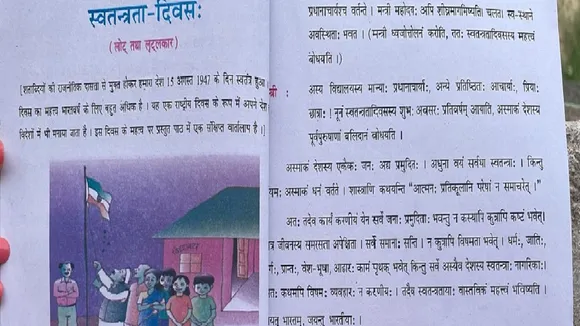 स्वतन्त्रता-दिवसः
(लोट् तथा लृट्लकार)
[शताब्दियों की राजनीतिक दासता से मुक्त होकर हमारा देश 15 अगस्त 1947 के दिन स्वतंत्र हुआ
दिवस का महत्त्व भारतवर्ष के लिए बहुत अधिक है । यह एक राष्ट्रीय दिवस के रूप में अपने देश
विदेशों में भी मनाया जाता है । इस दिवस के महत्त्व पर प्रस्तुत पाठ में एक संक्षिप्त वार्तालाप है ।]
प्रधानाचार्यश्च वर्तने । मन्त्री महोदयः अपि शीघ्रमागमिष्यति। चलत। स्व-स्थाने
अवस्थिताः भवत । (मन्त्री ध्वजोत्तोलनं करोति, ततः स्वतन्त्रतादिवसस्य महत्त्वं
बोधयति ।)
त्री :
अस्य विद्यालयस्य मान्याः प्रधानाचार्याः, अन्ये प्रतिष्ठिताः आचार्याः, प्रियाः
छात्राः ! नूनं स्वतन्त्रतादिवसस्य शुभः अवसरः प्रतिवर्षम् आयाति, अस्माकं देशस्य
पूर्वपुरुषाणां बलिदानं बोधयति ।
अस्माकं देशस्य एकैकः जनः अद्य प्रमुदितः । अधुना वयं सर्वथा स्वतन्त्राः । किन्तु
यमः अस्माकं धनं वर्तते । शास्त्राणि कथयन्ति "आत्मनः प्रतिकूलानि परेषां न समाचरेत् ।"
अतः तदेव कार्यं करणीयं येन सर्वे जनाः प्रमुदिताः भवन्तु न कस्यापि कुत्रापि कष्टं भवेत्।
जीवनस्य समरसता अपेक्षिता । सर्वे समानाः सन्ति । न कुत्रापि विषमता भवेत् । धर्मः, जातिः,
प्रान्तः, वेश-भूषा, आहारः कामं पृथक् भवेत् किन्तु सर्वे अस्यैव देशस्य स्वतन्त्राः नागरिकाः
अतः कथमपि विषमः व्यवहारः न करणीयः । तदैव स्वतन्त्रतायाः वास्तविकं महत्त्वं भविष्यति ।
जयतु भारतम्, जयन्तु भारतीयाः ।